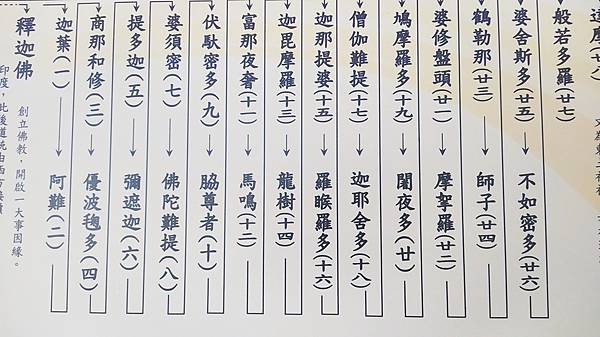 釋迦佛
創立佛教，開啟一大事因緣。
印度，此後道統由西方
迦葉(一)
阿難(二)
商那和修(三)
優波毱多(四)
提多迦(五)
彌遮迦(六)
婆須密(七)
佛陀難提(八)
伏馱密多(九)
脇尊者(十)
富那夜奢(十一)
馬鳴(十二)
迦毘摩羅(十三)
龍樹(十四)
迦那提婆(十五)
羅睺羅多(十六)
僧伽難提(十七)
迦耶舍多(十八)
鳩摩羅多(十九)
闍夜多(廿)
婆修盤頭(廿一)
摩挐羅(廿二)
鶴勒那(廿三)
師子(廿四)
婆舍斯多(廿五)
不如密多(廿六)
般若多羅(廿七)
達摩(廿八)